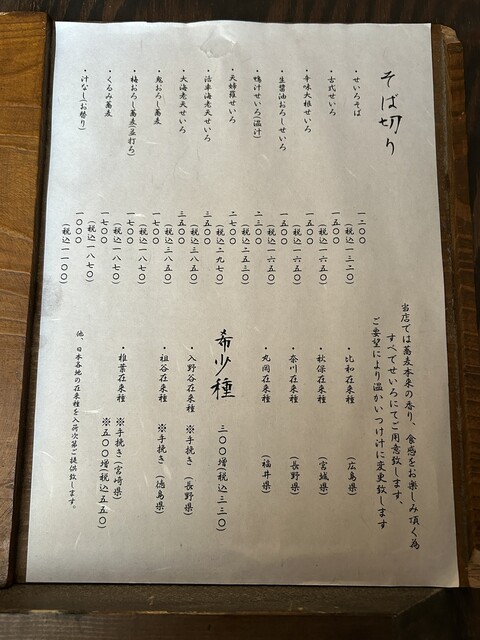 そば切り
・せいろそば 一二〇〇
(税込一三二〇)
・古代せいろ 一五〇〇
(税込一六五〇)
・辛味大根せいろ 一五〇〇
(税込一六五〇)
・生醤油おろしせいろ 一五〇〇
(税込一六五〇)
・鴨汁せいろ(温汁) 二三〇〇
(税込二五三〇)
・天婦羅せいろ 二七〇〇
(税込二九七〇)
・活車海老天せいろ 三五〇〇
(税込三八五〇)
・大海老天せいろ 三五〇〇
(税込三八五〇)
・鬼おろし蕎麦 一七〇〇
(税込一八七〇)
・梅おろし蕎麦(並打ち) 一七〇〇
(税込一八七〇)
・くるみ蕎麦 一七〇〇
(税込一八七〇)
・汁なし(お替り) 一〇〇〇
(税込一一〇〇)
当店では蕎麦本来の香り、食感をお楽しみ頂く為
すべてせいろにてご用意致します、
ご要望により温かいつけ汁に変更致します
・比和在来種 (広島県)
・秋保在来種 (宮城県)
・奈川在来種 (長野県)
・丸岡在来種 (福井県)
希少種 三〇〇増(税込三三〇)
・入野谷在来種 ※手挽き (長野県)
・祖谷在来種 ※手挽き (徳島県)
・椎葉在来種 ※手挽き(宮崎県)
※五〇〇増(税込五五〇)
他、日本各地の在来種を入荷次第ご提供致します。